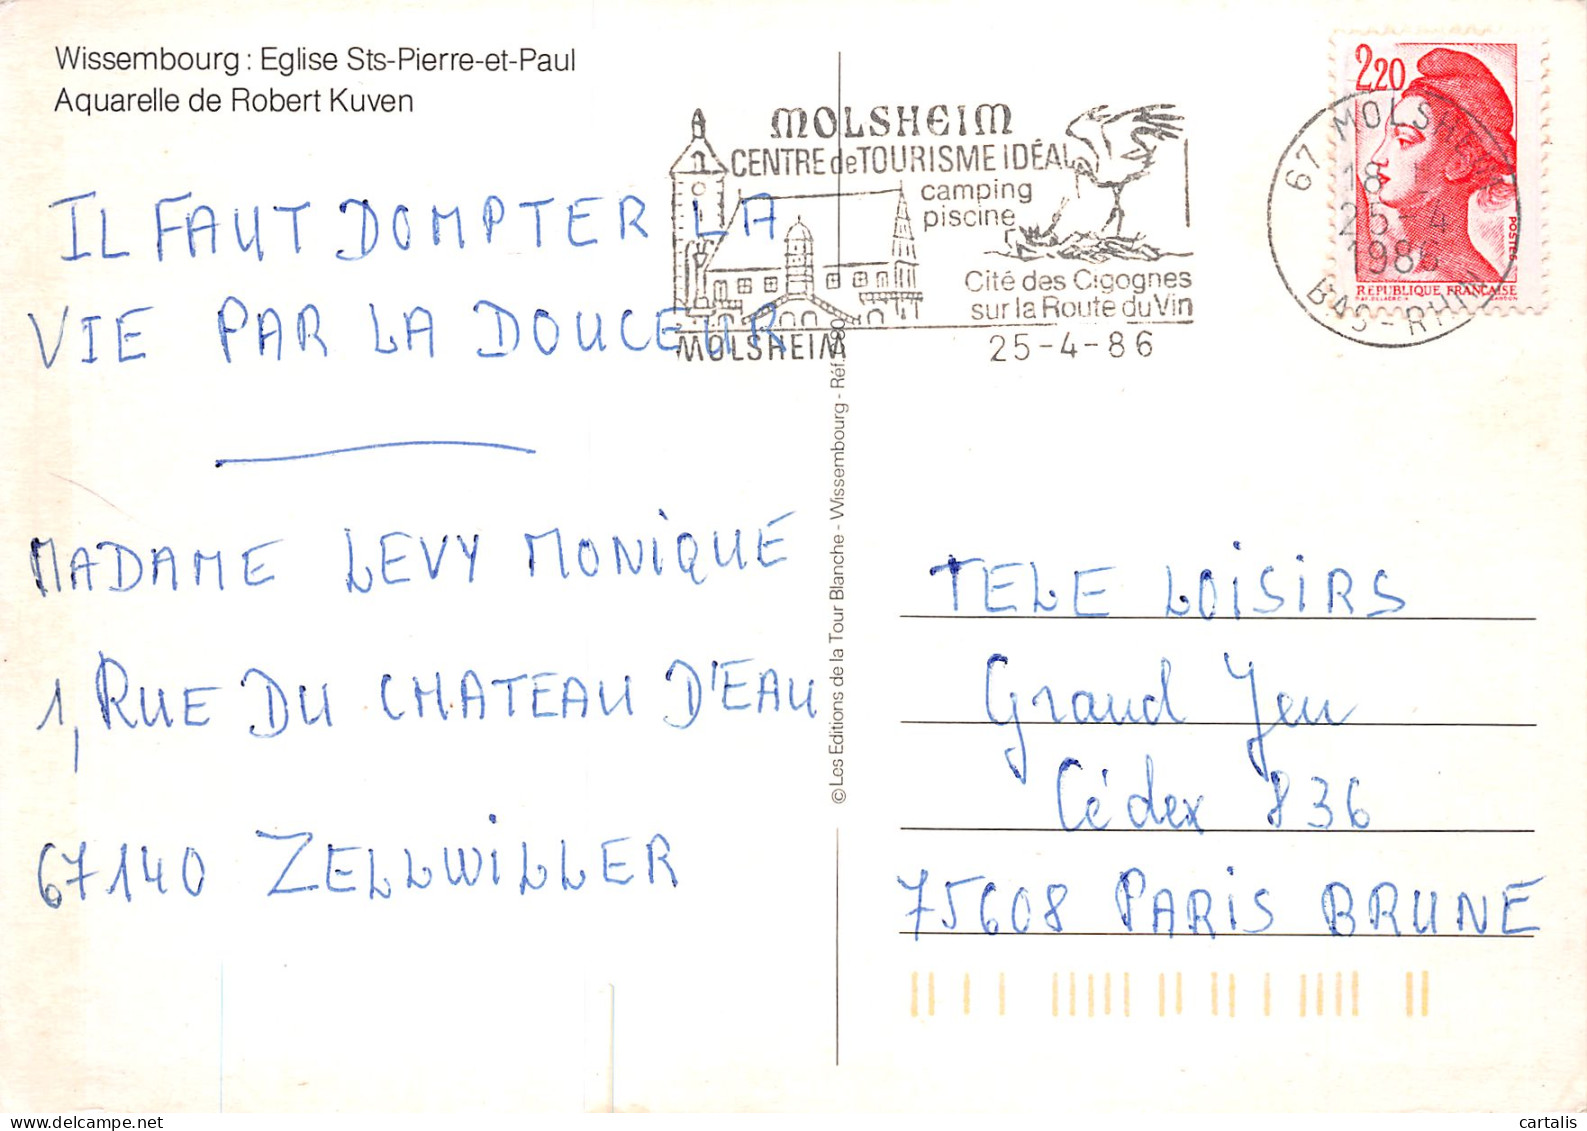 Wissembourg : Eglise Sts-Pierre-et-Paul
Aquarelle de Robert Kuven
MOLSHEIM
CENTRE de TOURISME IDÉAL
camping
piscine
Cité des Cigognes
sur la Route du Vin
MOLSHEIM
25-4-86
67 MOLSHEIM
18
25-4
1986
BAS-RHIN
2,20
POSTES
REPUBLIQUE FRANÇAISE
IL FAUT DOMPTER LA
VIE PAR LA DOUCEUR
MADAME LEVY MONIQUE
1, RUE DU CHATEAU D'EAU
67140 ZELLWILLER
© Les Editions de la Tour Blanche - Wissembourg - Réf.
TELE LOISIRS
Grand Jeu
Cédex 836
75608 PARIS BRUNE
cartalis